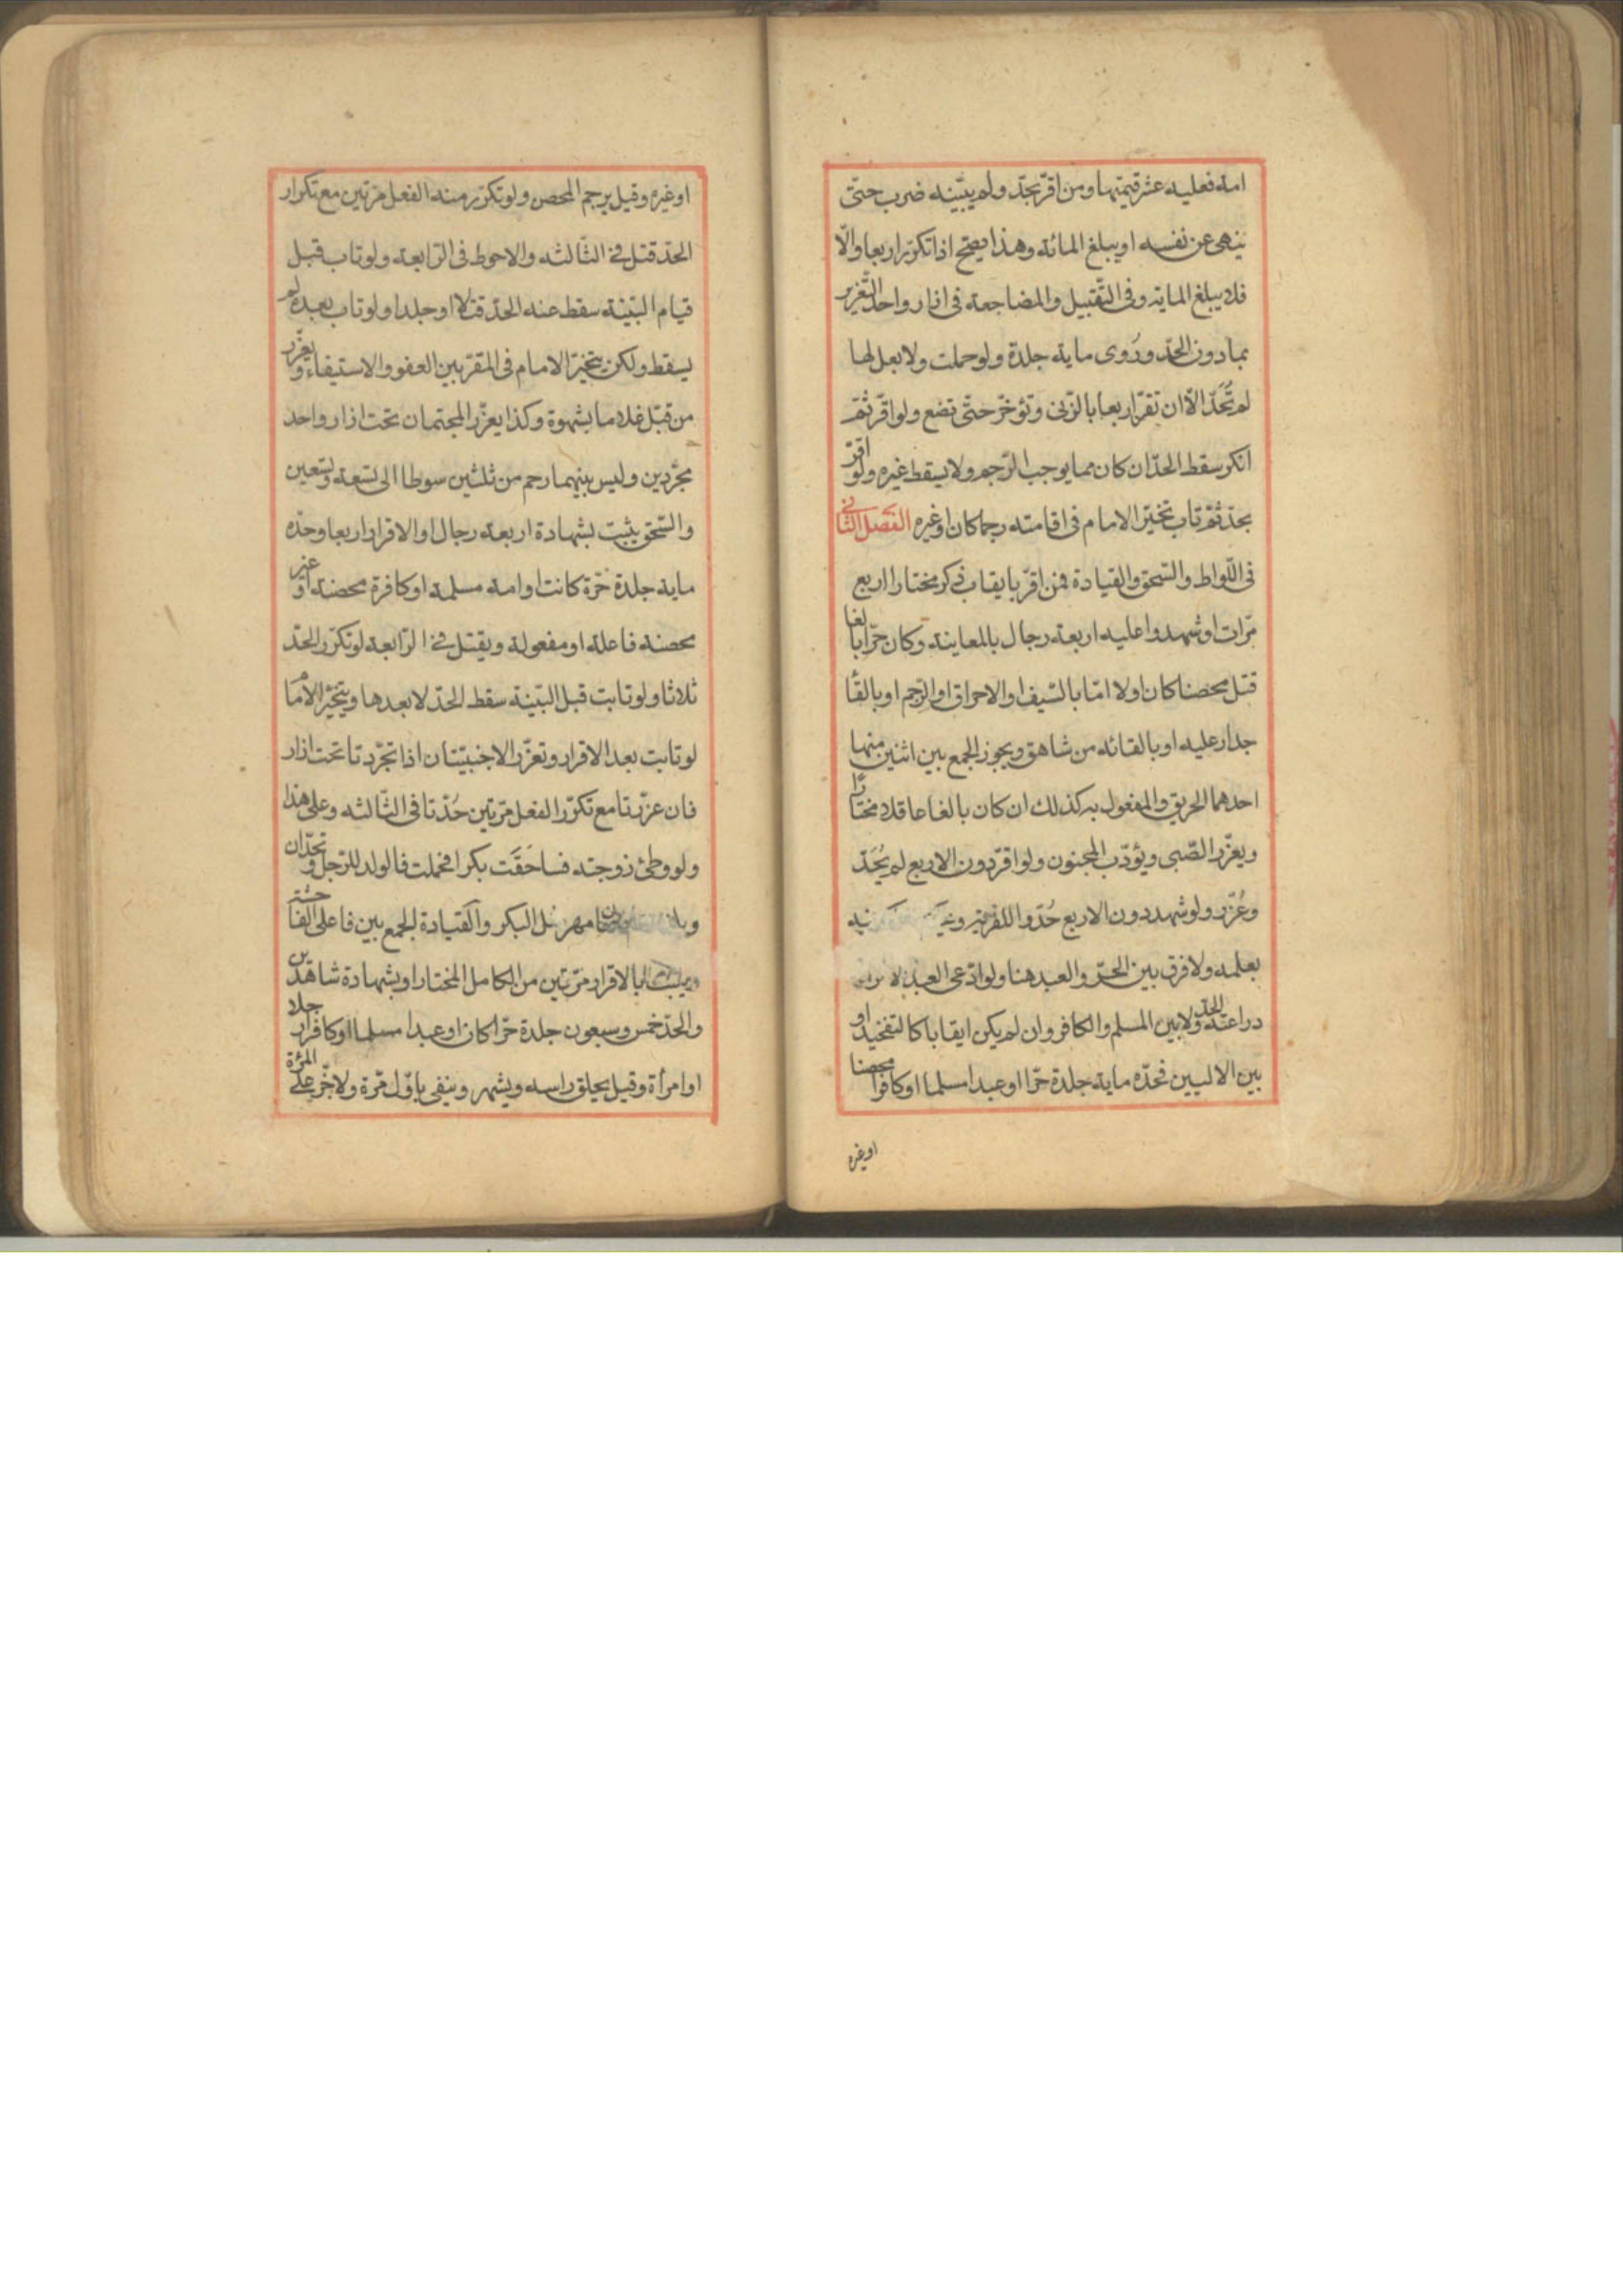 امة فعليه عشر قيمتها ومن اقرّ بحدّ ولم يبيّنه ضرب حتّى
ينهى عن نفسه او يبلغ المائة وهذا يصحّ اذا تكرّر اربعا والّا
فلا يبلغ الماية وفى التّقبيل والمضاجعة فى ازار واحد التّعزير
بمادون الحدّ وروى ماية جلدة ولو حملت ولا بعل لها
لم تُحَدّ الّا ان تقرّ اربعا بالزّنى وتؤخّر حتّى تضع ولو اقرّ ثمّ
انكر سقط الحدّ ان كان مما يوجب الرّجم ولا يسقط غيره ولو اقرّ
بحدّ ثمّ تاب تخيّر الامام فى اقامته رجما كان او غيره الفصل الثّانى
فى اللّواط والسّحق والقيادة فمن اقرّ بايقاب ذكر مختارا اربع
مرّات او شهد واعليه اربعة رجال بالمعاينة وكان حرّا بالغا
قتل محصنا كان اولا امّا بالسّيف او الاحراق او الرّجم او بالقا
جدار عليه او بالقائه من شاهق ويجوز الجمع بين اثنين منها
احدهما الحريق والمفعول به كذلك ان كان بالغا عاقلا مختارا
ويعزّر الصّبى ويؤدّب المجنون ولو اقرّ دون الاربع لم يُحَدّ
وعُزّر ولو شهد دون الاربع حُدّوا للفرية
بعلمه ولا فرق بين الحرّ والعبد هنا ولو ادّعى العبد
دراعنه الحدّ ولا بين المسلم والكافر وان لم يكن ايقابا كالتفخيذ او
بين الاليين فحدّه ماية جلدة حرّا او عبدا مسلما او كافرا محصنا
او غيره
او غيره وقيل يرجم المحصن ولو تكرّر منه الفعل مرّتين مع تكرار
الحدّ قتل فى الثّالثه والاحوط فى الرّابعة ولو تاب قبل
قيام البيّنة سقط عنه الحدّ قتلا او جلدا ولو تاب بعده لم
يسقط ولكن يتخيّر الامام فى المقرّ بين العفو والاستيفاء ويعزّر
من قبّل غلاما بشهوة وكذا يعزّر المجتمعان تحت ازار واحد
مجرّدين وليس بينهما رحم من ثلثين سوطا الى تسعة وتسعين
والسّحق يثبت بشهادة اربعة رجال او الاقرار اربعا وحدّه
ماية جلدة حرّة كانت او امة مسلمة او كافرة محصنة او غير
محصنة فاعلة او مفعولة ويقتل فى الرّابعة لو تكرّر الحدّ
ثلاثا ولو تابت قبل البيّنة سقط الحدّ لا بعدها ويتخيّر الامام
لو تابت بعد الاقرار وتعزّر الاجنبيّتان اذا تجرّدتا تحت ازار
فان عزّرتا مع تكرّر الفعل مرّتين حُدّتا فى الثّالثه وعلى هذا
ولو وطئ زوجته فساحَقَت بكرا فحملت فالولد للرّجل وتحدّان
مهر مثل البكر والقيادة الجمع بين فاعلى الفاحشة
بالاقرار مرّتين من الكامل المختار او بشهادة شاهدين
والحدّ خمس وسبعون جلدة حرّا كان او عبدا مسلما او كافرا رجلا
او امرأة وقيل يحلق راسه ويشهر وينفى باوّل مرّة ولا جزّ على المرأة